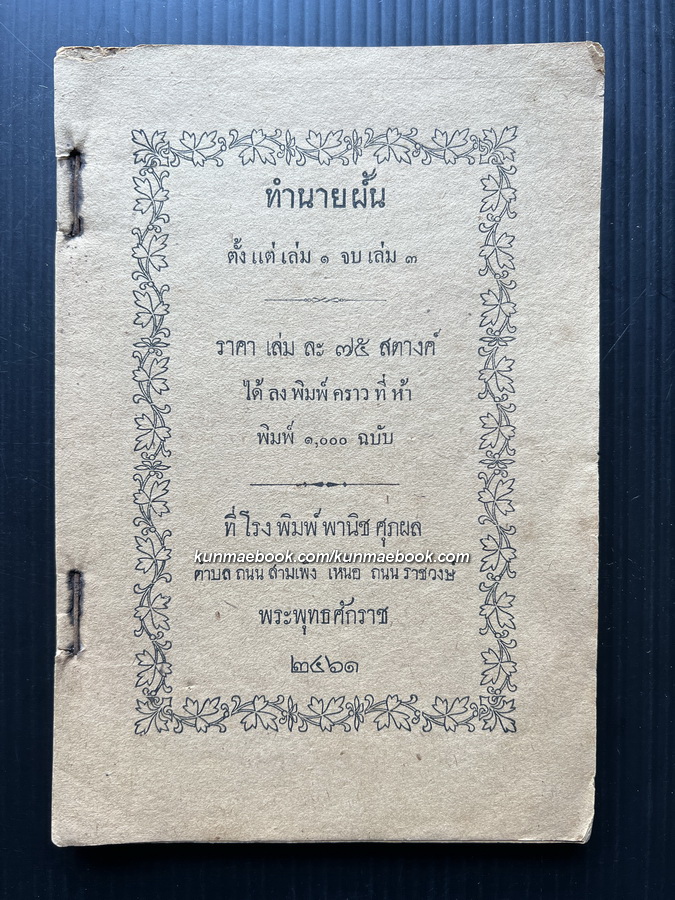 ทำนายฝัน
ตั้ง แต่ เล่ม ๑ จบ เล่ม ๓
ราคา เล่ม ละ ๗๕ สตางค์
ได้ ลง พิมพ์ คราว ที่ ห้า
พิมพ์ ๑,๐๐๐ ฉบับ
ที่ โรง พิมพ์ พานิช ศุภผล
kunmaebook.com/kunmaebook.com
ตำบล ถนน สามเพ็ง เหนือ ถนน ราชวงษ
พระพุทธศักราช
๒๔๖๑